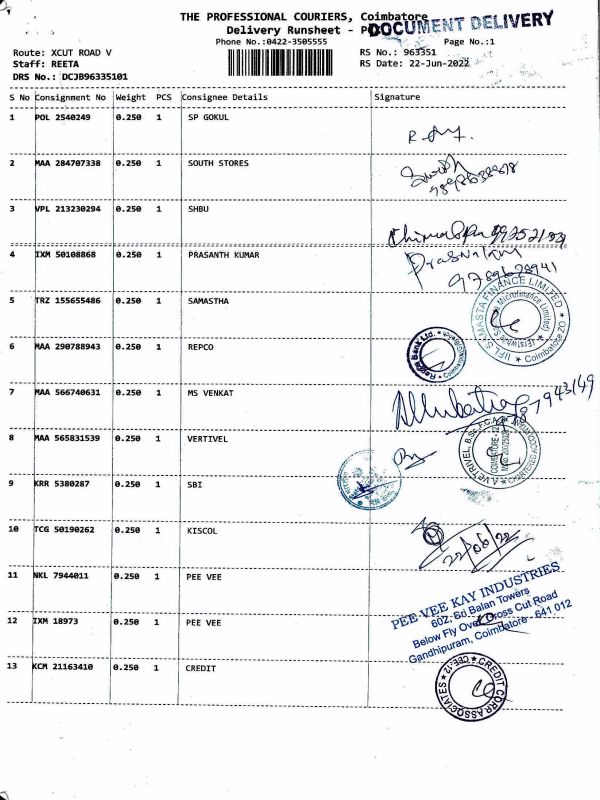 THE PROFESSIONAL COURIERS, Coimbatore
DOCUMENT DELIVERY
Delivery Runsheet -
Phone No.:0422-3505555
Page No.:1
Route: XCUT ROAD V
RS No.: 963351
Staff: REETA
RS Date: 22-Jun-2022
DRS No.: DCJB96335101
S No Consignment No Weight PCS Consignee Details Signature
1 POL 2540249 0.250 1 SP GOKUL
2 MAA 284707338 0.250 1 SOUTH STORES
3 VPL 213230294 0.250 1 SHBU
4 IXM 50108868 0.250 1 PRASANTH KUMAR
5 TRZ 155655486 0.250 1 SAMASTHA
IIFL SAMASTA FINANCE LIMITED
Microfinance Limited)
Coimbatore ZO
6 MAA 290788943 0.250 1 REPCO
Repco Bank Ltd.
7 MAA 566740631 0.250 1 MS VENKAT
8 MAA 565831539 0.250 1 VERTIVEL
A.VETRIVEL, B.Sc., F.C.A.
CHARTERED ACCOUNTANT
9 KRR 5380287 0.250 1 SBI
10 TCG 50190262 0.250 1 KISCOL
22/06/22
11 NKL 7944011 0.250 1 PEE VEE
PEE VEE KAY INDUSTRIES
602, Sri Balan Towers
Below Fly Over Cross Cut Road
Gandhipuram, Coimbatore - 641 012
12 IXM 18973 0.250 1 PEE VEE
13 KCM 21163410 0.250 1 CREDIT
CREDIT CORP ASSOCIATES
CBE-12